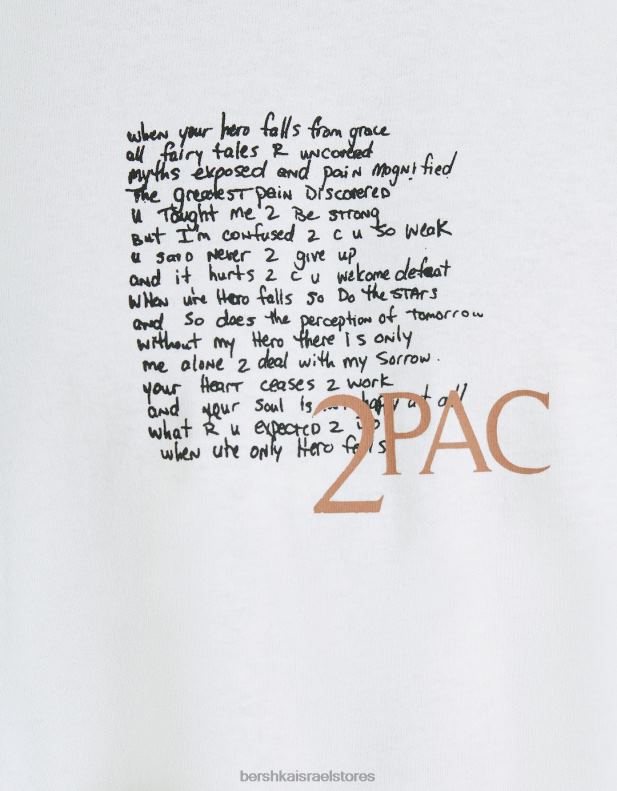 when your hero falls from grace
all fairy tales R uncovered
myths exposed and pain magnified
The greatest pain Discovered
u Taught me 2 Be strong
But I'm confused 2 c u so weak
u said Never 2 give up
and it hurts 2 c u welcome defeat
When ure Hero falls so Do the STARS
and so does the perception of tomorrow
without my Hero there is only
me alone 2 deal with my Sorrow.
your Heart ceases 2 work
and your soul is not happy at all
what R u expected 2 do
when ure only Hero falls
2PAC
bershkaisraelstores